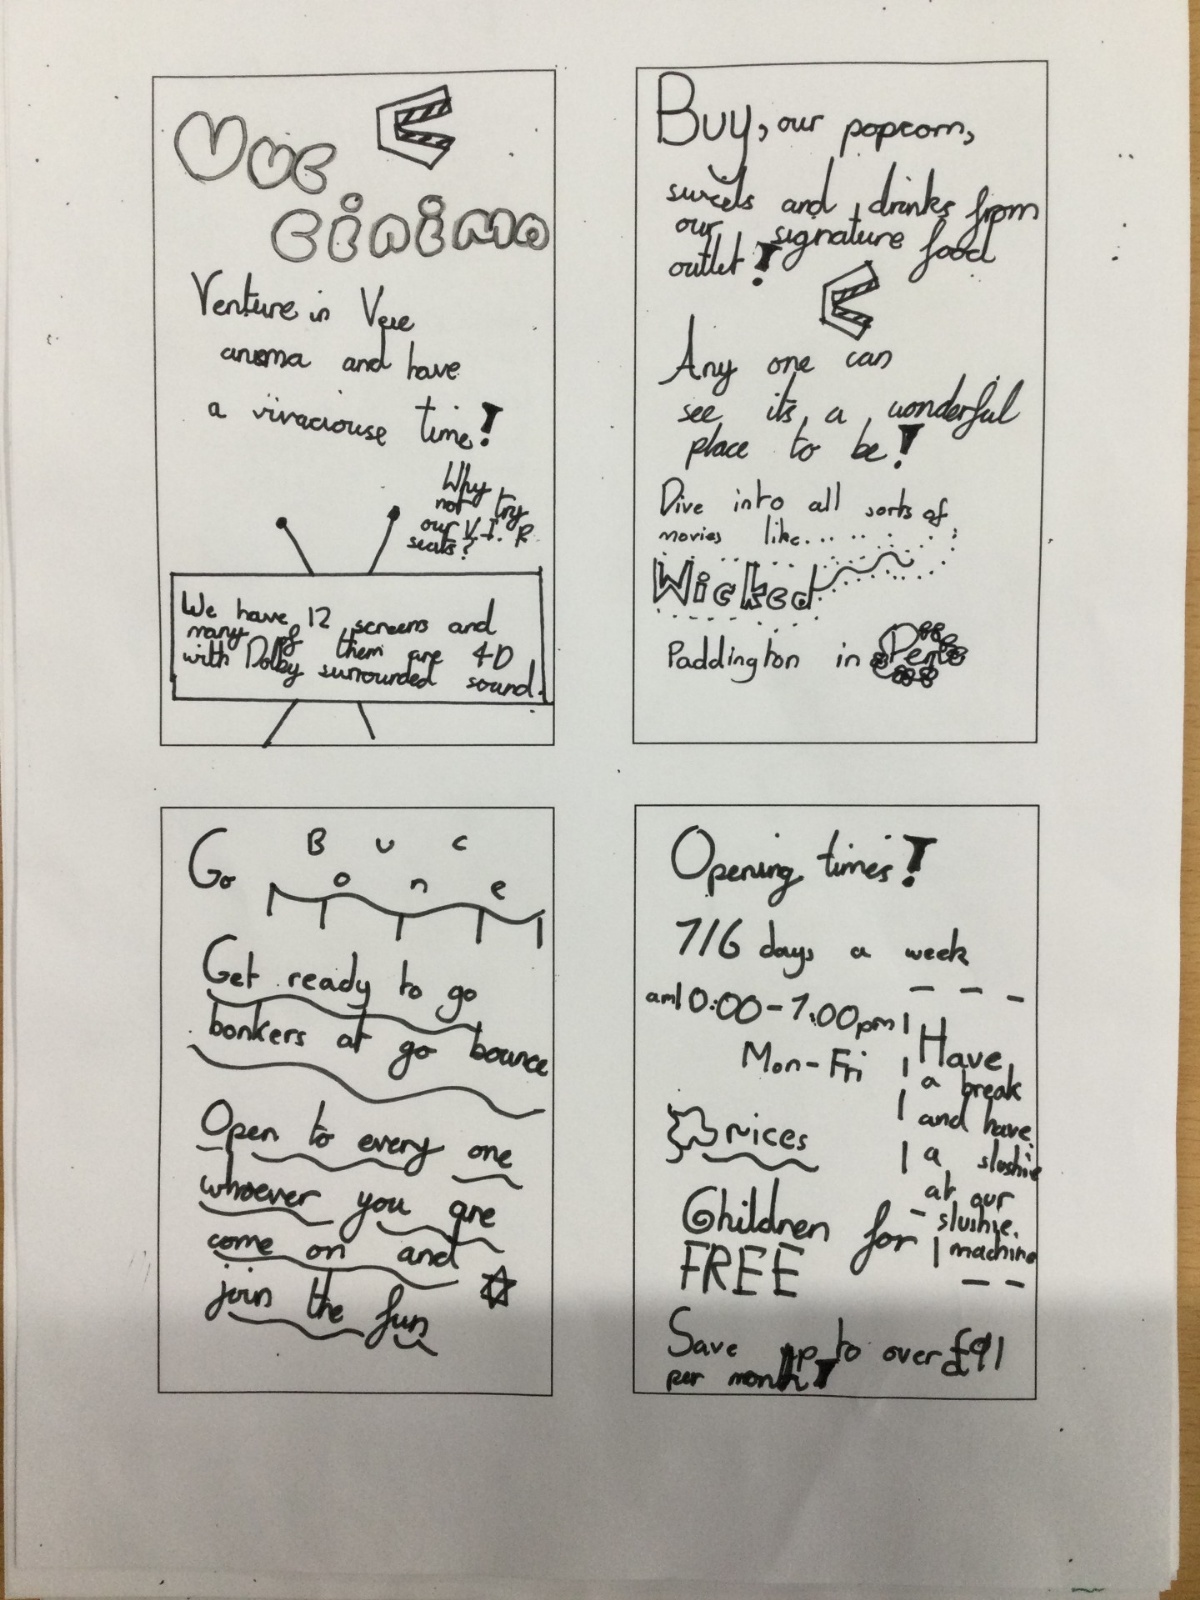 Vue
cinima
Venture in Vue
and have
a vivaciouse time!
Why
not try
our V.I.P
seats?
We have 12 screens and
many of them are 4D
with Dolby surrounded sound.
Buy, our popcorn,
sweets and drinks from
our signature food
outlet!
Any one can
see its, a wonderful
place to be!
Dive into all sorts of
movies like.......
Wicked
Paddington in Peru
Go Bounce
Get ready to go
bonkers at go bounce
Open to every one
whoever you are
come on and
join the fun
Opening times!
7/6 days a week
am10:00-7:00pm
Mon-Fri
Prices
Children for
FREE
Save up to over £91
per month!
Have
a break
and have
a slushie
at our
slushie
machine